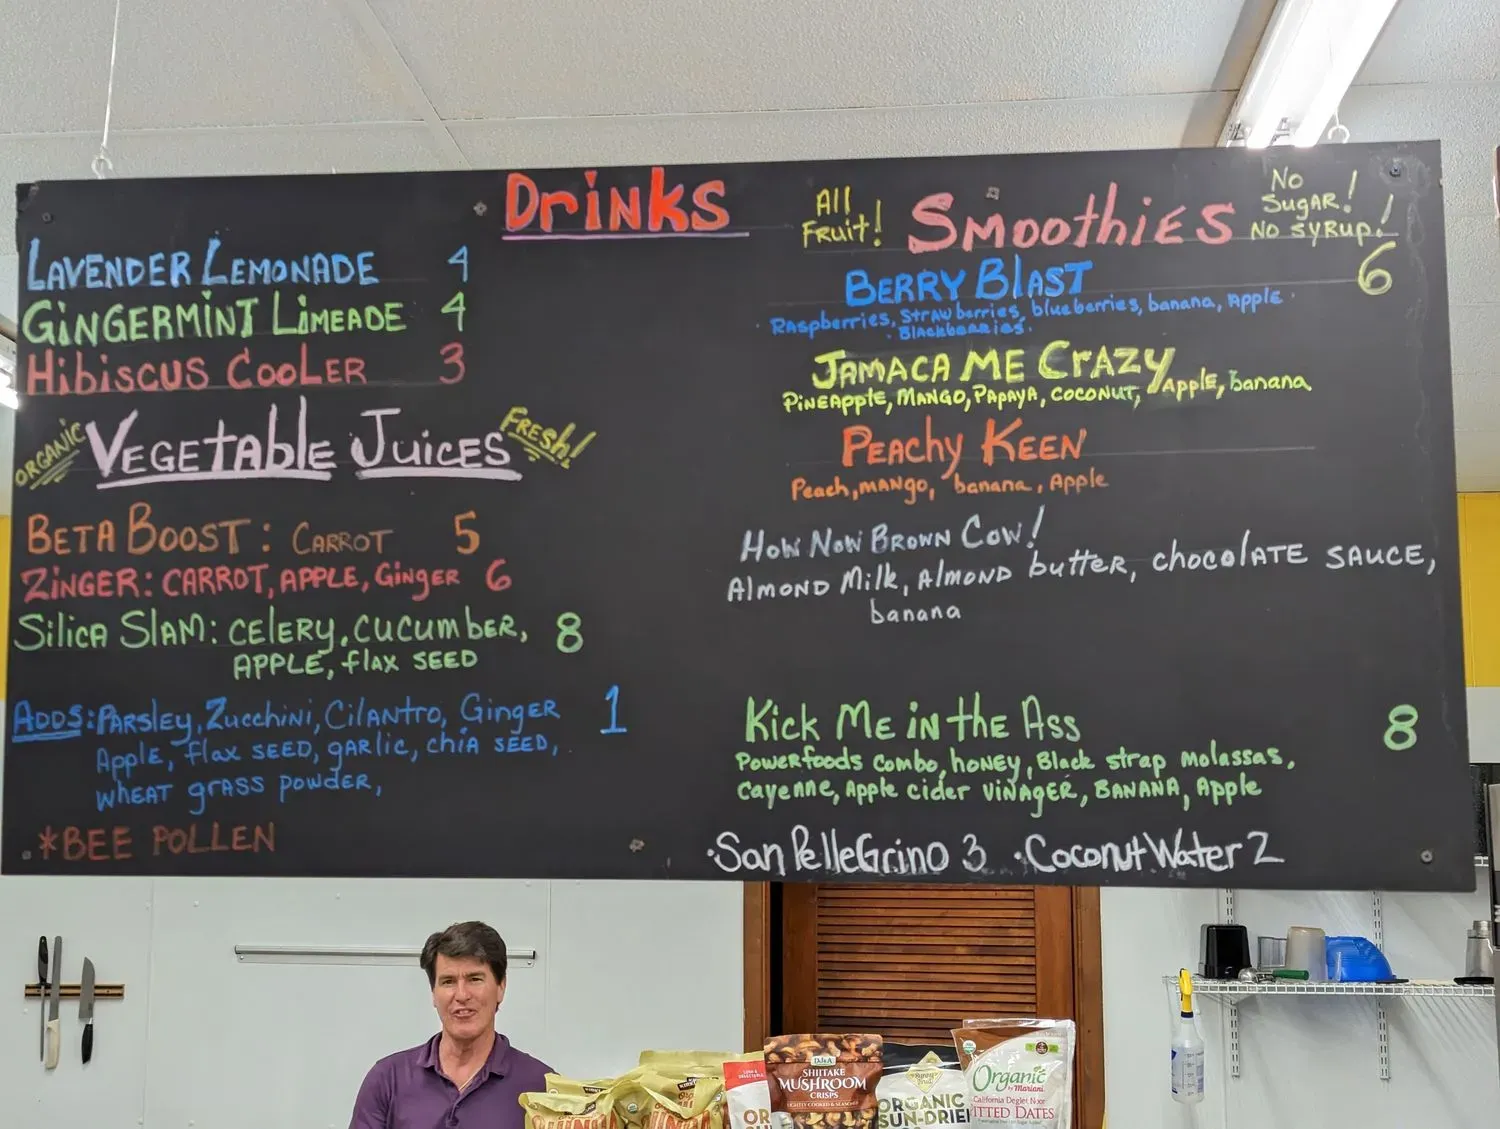 Drinks
LAVENDER LEMONADE 4
GiNGERMiNT LiMEADE 4
HibiscUS COOLER 3
ORGANIC VEGETAbLE JUICES FRESh!
BETA BOOST: CARROT 5
ZiNGER: CARROT, APPLE, GiNGER 6
SilicA SLAM: CELERY, CUCUMbER, 8
APPLE, flAX SEED
ADDS: PARSLEY, ZUCChiNi, CilANTRO, GiNGER 1
Apple, flAX SEED, gARlic, chiA SEED,
WhEAT gRASS powdER,
*BEE POLLEN
All FRuiT! SMOOThiES No SugAR! No SYRUP!
BERRY BLAST 6
RAspberries, STRAWberries, blueberries, bANANA, Apple
BlAckberries.
JAMACA ME CRAZY
PiNEApple, MANGO, PAPAYA, COCONUT, Apple, bANANA
PEAChy KEEN
Peach, MANgo, banana, Apple
HOW NOW BROWN COW!
AlMOND Milk, AlMOND buttER, chocolATE SAUCE,
banana
Kick ME iN the Ass 8
Powerfoods combo, hONEY, Black strap Molassas,
Cayenne, Apple cider ViNAGER, BANANA, Apple
·San PelleGrino 3 ·Coconut Water 2
DJ&A
SHIITAKE
MUSHROOM
CRISPS
LIGHTLY COOKED & SEASONED
ORGANIC
SUN-DRIED
Organic
by Mariani
California Deglet Noor
PITTED DATES